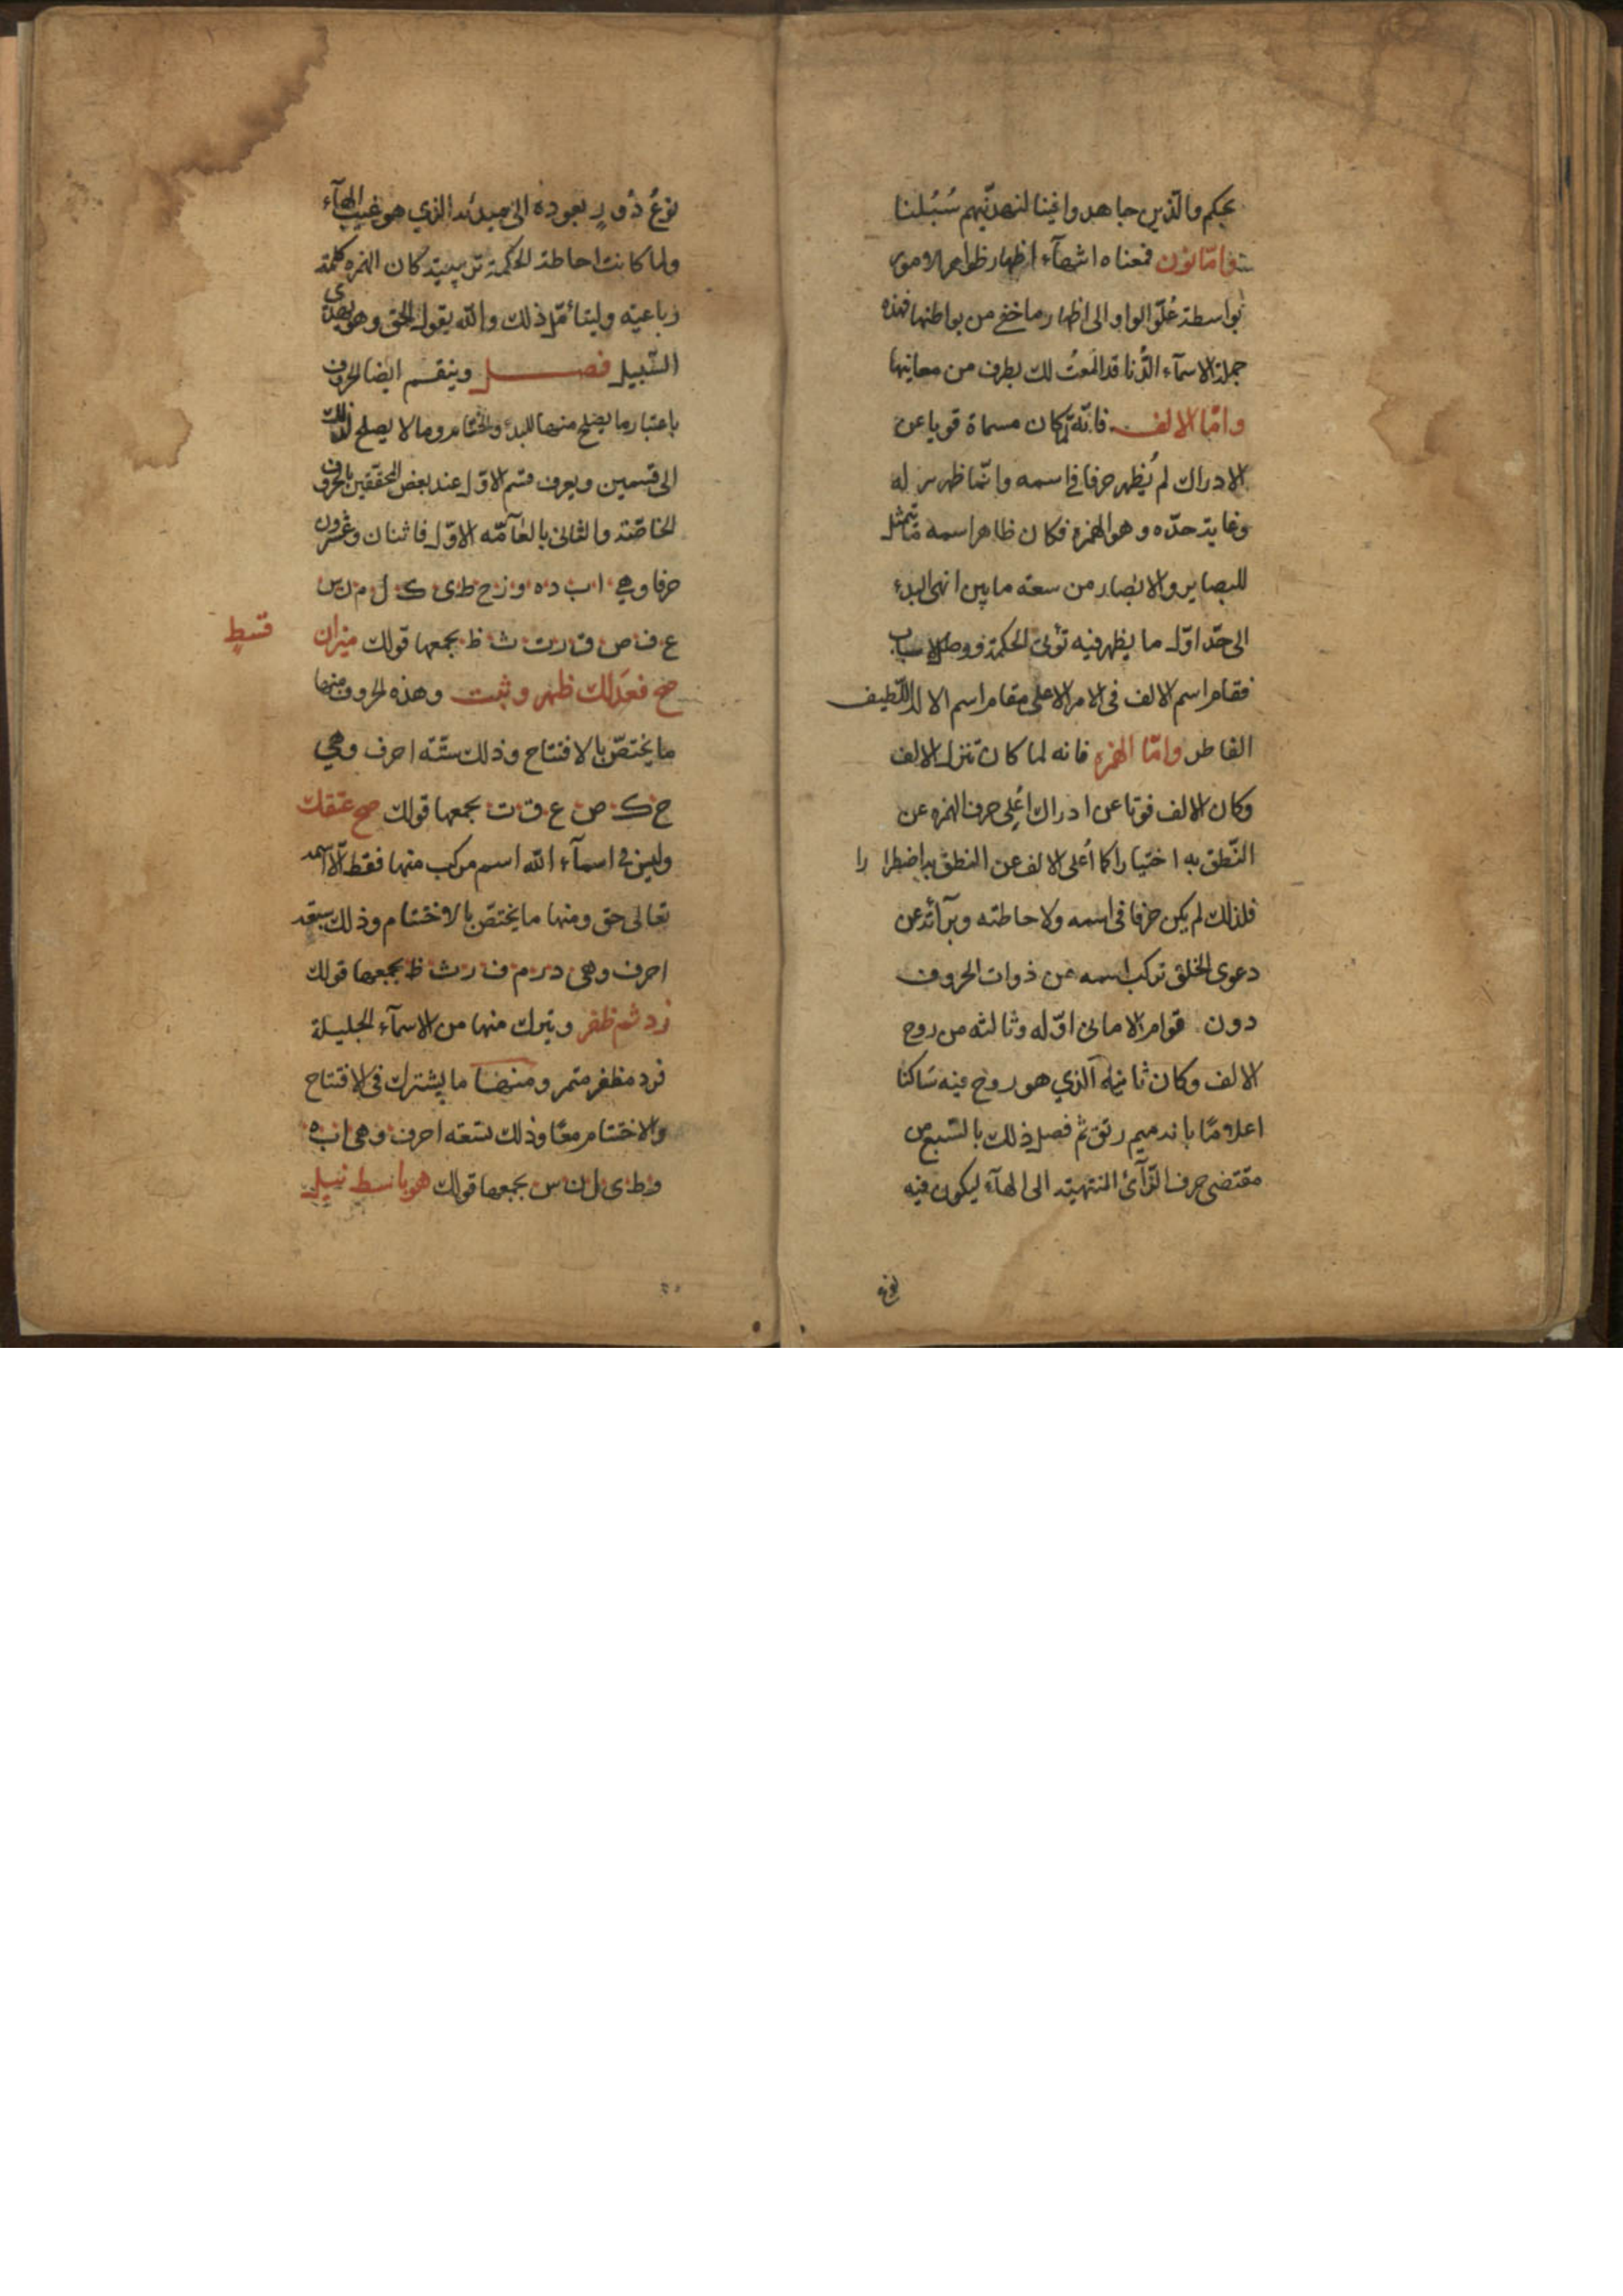 بحكم والذين جاهدوا فينا لنهدينّهم سُبُلنا
وامّا نون فمعناه اشهآء اظهار ظواهر الامور
بواسطة عُلّو الواو الى اظهار ما خفي من بواطنها فهذه
جملة الاسمآء قد المعتُ لك بطرف من معانيها
وامّا الالف فانّه لما كان مسماة فوتا عن
الادراك لم يُظهر حرفا في اسمه وانّما ظهر له
وغاية حدّه وهو الهمزه فكان ظاهر اسمه
للبصاير والابصار من سعته ما بين انهى البدء
الى حدّ اوّل ما يظهر فيه الحكمة ووصل الاسباب
فقام اسم الالف في الامر الاعلى مقام اسم الاله اللّطيف
الفاطر وامّا الهمزه فانه لما كان تنزل الالف
وكان الالف فوتا عن ادراك اُعلى حرف الهمزه عن
النّطق به اختيارا كما اُعلى الالف عن النطق به اضطرارا
فلذلك لم يكن حرفا في اسمه ولاحاطته وبرآئه عن
دعوى الخلق تركب اسمه من ذوات الحروف
دون قوام الا ما في اوّله وثالثه من روح
الالف وكان ثانيه الذي هو روح فيه سَاكنا
اعلاما بانه ميم رتق ثم فصل ذلك بالتسبع من
مقتضى حرف الزّآئ المنتهية الى الهآء ليكون فيه
نوع
نوعُ دَورٍ بعوده الى مبدئه الذي هو غيب الهآء
ولما كانت احاطة الحكمة تربيعيّة كان الهمزه كلمة
رباعيّه وليتأمّل ذلك والله يقول الحق وهو يهدى
السّبيل فصل وينقسم ايضا الحروف
باعتبار ما يصلح منها للبدء والختام وما لا يصلح لذلك
الى قسمين ويعرف قسم الاوّل عند بعض المحقّقين بالحروف
الخاصّة والثانى بالعآمّه الاوّل فاثنان وعشرون
حرفا وهي ا ب د ه و ز ح ط ى ك ل م ن س
ع ف ص ق ر ت ث ظ يجمعها قولك ميزان
قسط
صح فعدلك ظهر وثبت وهذه الحروف منها
ما يختصّ بالافتتاح وذلك ستّه احرف وهي
ح ك ص ع ق ت يجمعها قولك صح عتقك
وليس في اسمآء الله اسم مركب منها فقط الّا اسمه
تعالى حق ومنها ما يختصّ بالاختتام وذلك سبعة
احرف وهى د ز م ف ر ث ظ يجمعها قولك
زد ثم ظفر ويترك منها من الاسمآء الجليلة
فرد مظفر متمر ومنها ما يشترك فى الافتتاح
والاختتام معًا وذلك تسعه احرف وهى ا ب ه
و ط ى ل ن س يجمعها قولك هو باسط نيل